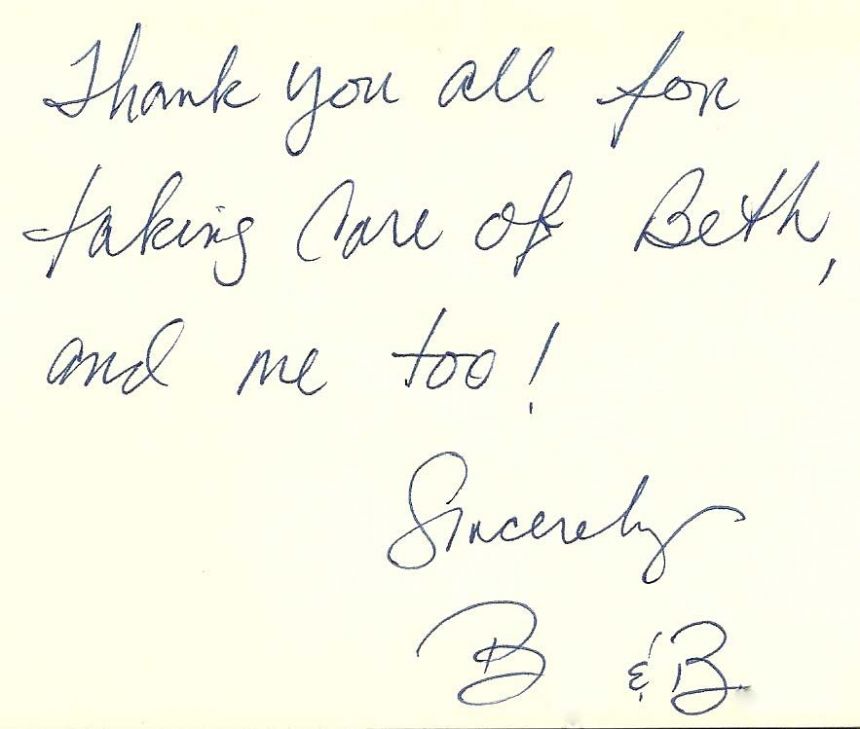 Thank you all for
taking Care of Beth,
and me too!
Sincerely
B & B